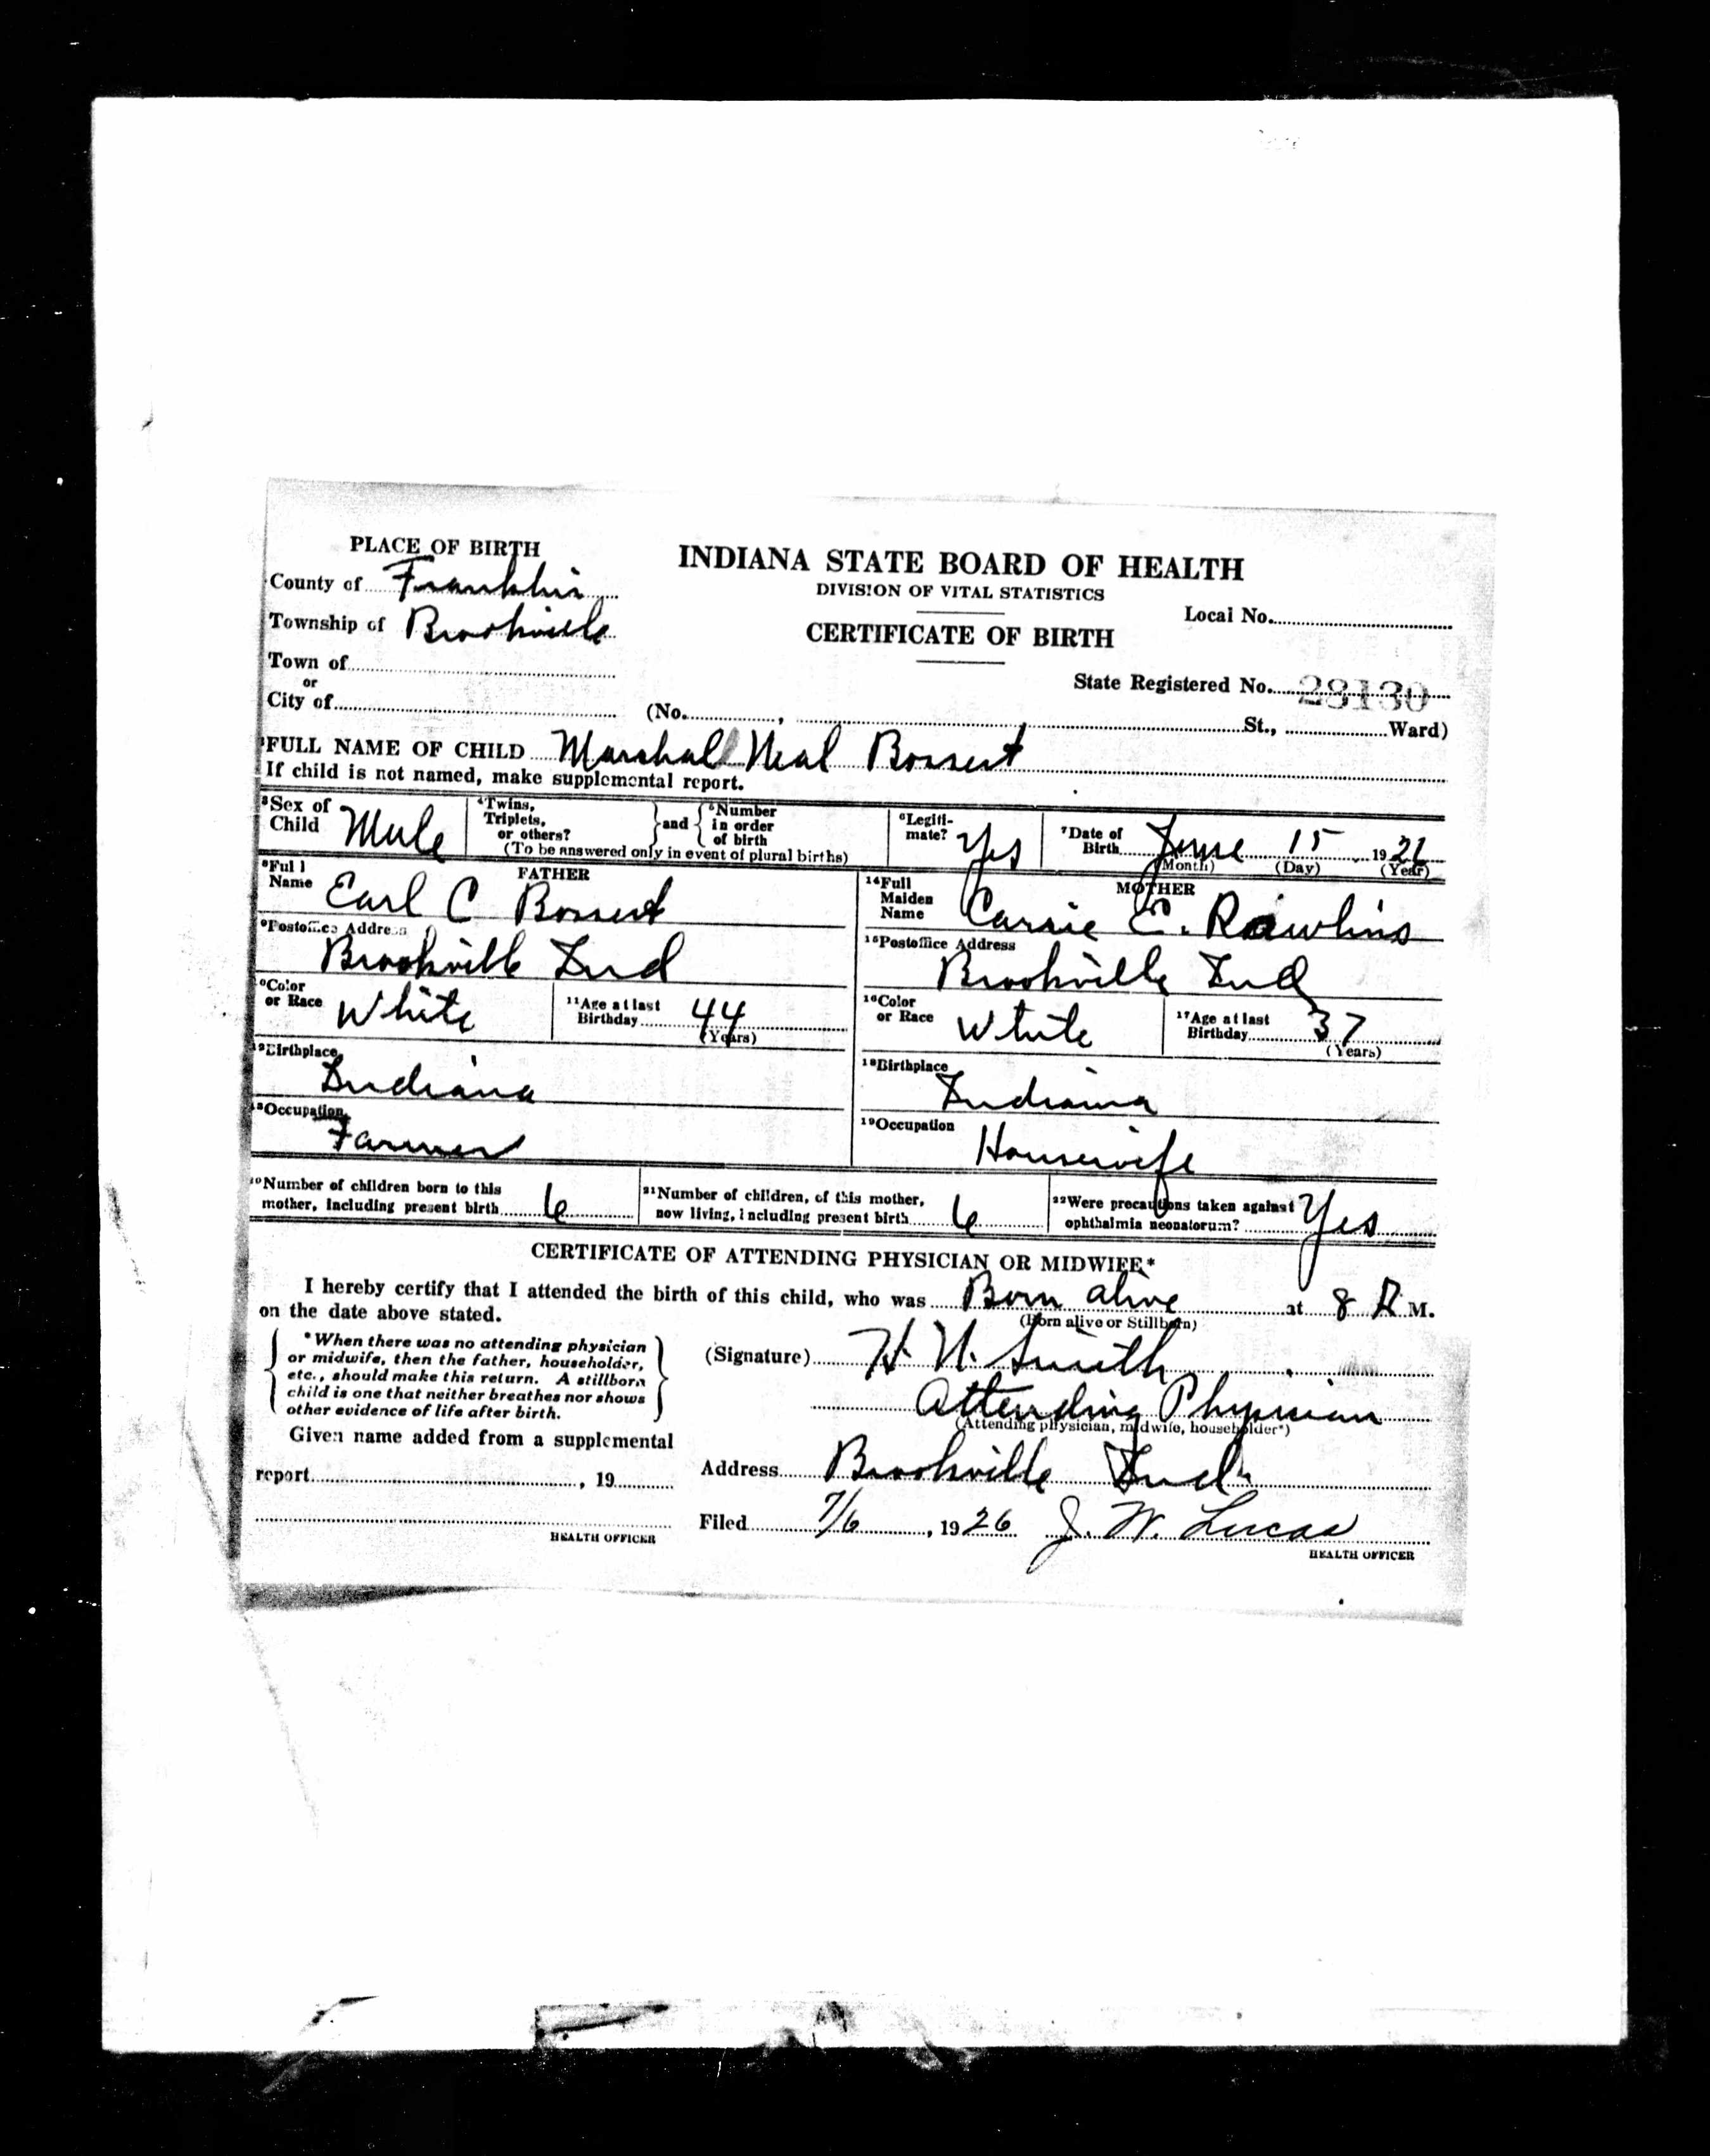 PLACE OF BIRTH
County of Franklin
Township of Brookville
Town of
or
City of
INDIANA STATE BOARD OF HEALTH
DIVISION OF VITAL STATISTICS
CERTIFICATE OF BIRTH
Local No.
State Registered No. 28130
(No. , St., Ward)
FULL NAME OF CHILD Marshall Neal Bossert
If child is not named, make supplemental report.
3Sex of Child Male
4Twins, Triplets, or others? and 5Number in order of birth
(To be answered only in event of plural births)
6Legitimate? Yes
7Date of Birth June 15 1926
(Month) (Day) (Year)
FATHER
8Full Name Earl C Bossert
9Postoffice Address
Brookville Ind
10Color or Race White
11Age at last Birthday 44
(Years)
12Birthplace
Indiana
13Occupation
Farmer
MOTHER
14Full Maiden Name Carrie E. Rawlins
15Postoffice Address
Brookville Ind
16Color or Race White
17Age at last Birthday 37
(Years)
18Birthplace
Indiana
19Occupation
Housewife
20Number of children born to this mother, including present birth 6
21Number of children, of this mother, now living, including present birth 6
22Were precautions taken against ophthalmia neonatorum? Yes
CERTIFICATE OF ATTENDING PHYSICIAN OR MIDWIFE*
I hereby certify that I attended the birth of this child, who was Born alive at 8 A M.
(Born alive or Stillborn)
on the date above stated.
*When there was no attending physician
or midwife, then the father, householder,
etc., should make this return. A stillborn
child is one that neither breathes nor shows
other evidence of life after birth.
(Signature) H. N. Smith
Attending Physician
(Attending physician, midwife, householder*)
Given name added from a supplemental
report , 19
HEALTH OFFICER
Address Brookville Ind
Filed 7/6, 1926 J. W. Lucas
HEALTH OFFICER